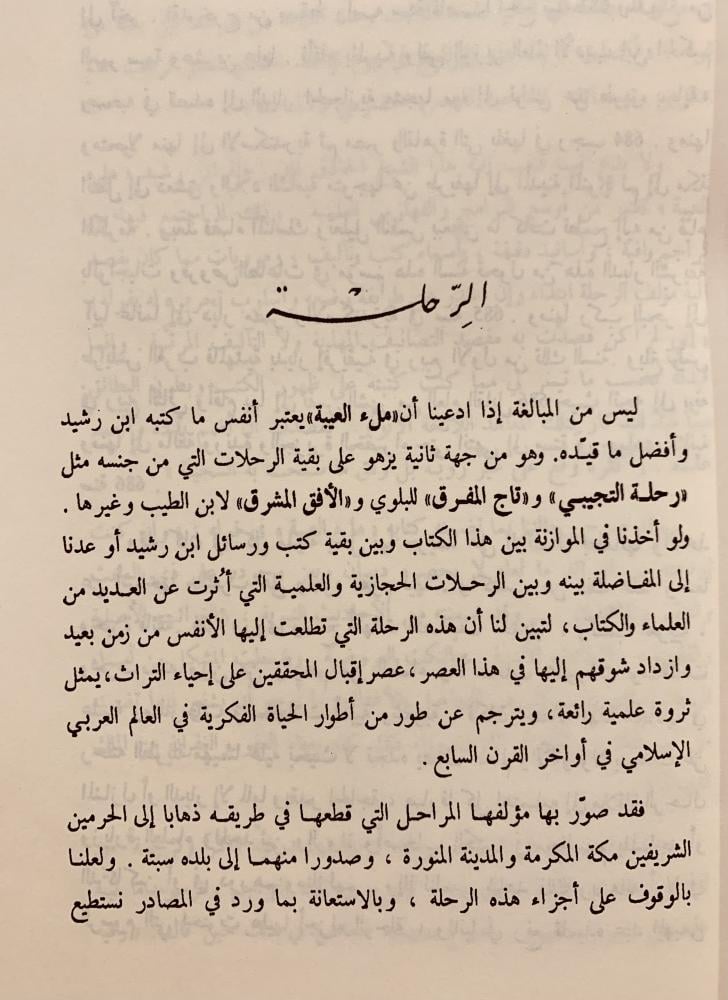 الرِّحلة
ليس من المبالغة إذا ادعينا أن «ملء العيبة» يعتبر أنفس ما كتبه ابن رشيد
وأفضل ما قيّده. وهو من جهة ثانية يزهو على بقية الرحلات التي من جنسه مثل
«رحلة التجيبي» و«تاج المفرق» للبلوي و«الأفق المشرق» لابن الطيب وغيرها .
ولو أخذنا في الموازنة بين هذا الكتاب وبين بقية كتب ورسائل ابن رشيد أو عدنا
إلى المفاضلة بينه وبين الرحلات الحجازية والعلمية التي أُثرت عن العديد من
العلماء والكتاب، لتبين لنا أن هذه الرحلة التي تطلعت إليها الأنفس من زمن بعيد
وازداد شوقهم إليها في هذا العصر، عصر إقبال المحققين على إحياء التراث، يمثل
ثروة علمية رائعة، ويترجم عن طور من أطوار الحياة الفكرية في العالم العربي
الإسلامي في أواخر القرن السابع .
فقد صوّر بها مؤلفها المراحل التي قطعها في طريقه ذهابا إلى الحرمين
الشريفين مكة المكرمة والمدينة المنورة ، وصدورا منهما إلى بلده سبتة . ولعلنا
بالوقوف على أجزاء هذه الرحلة ، وبالاستعانة بما ورد في المصادر نستطيع